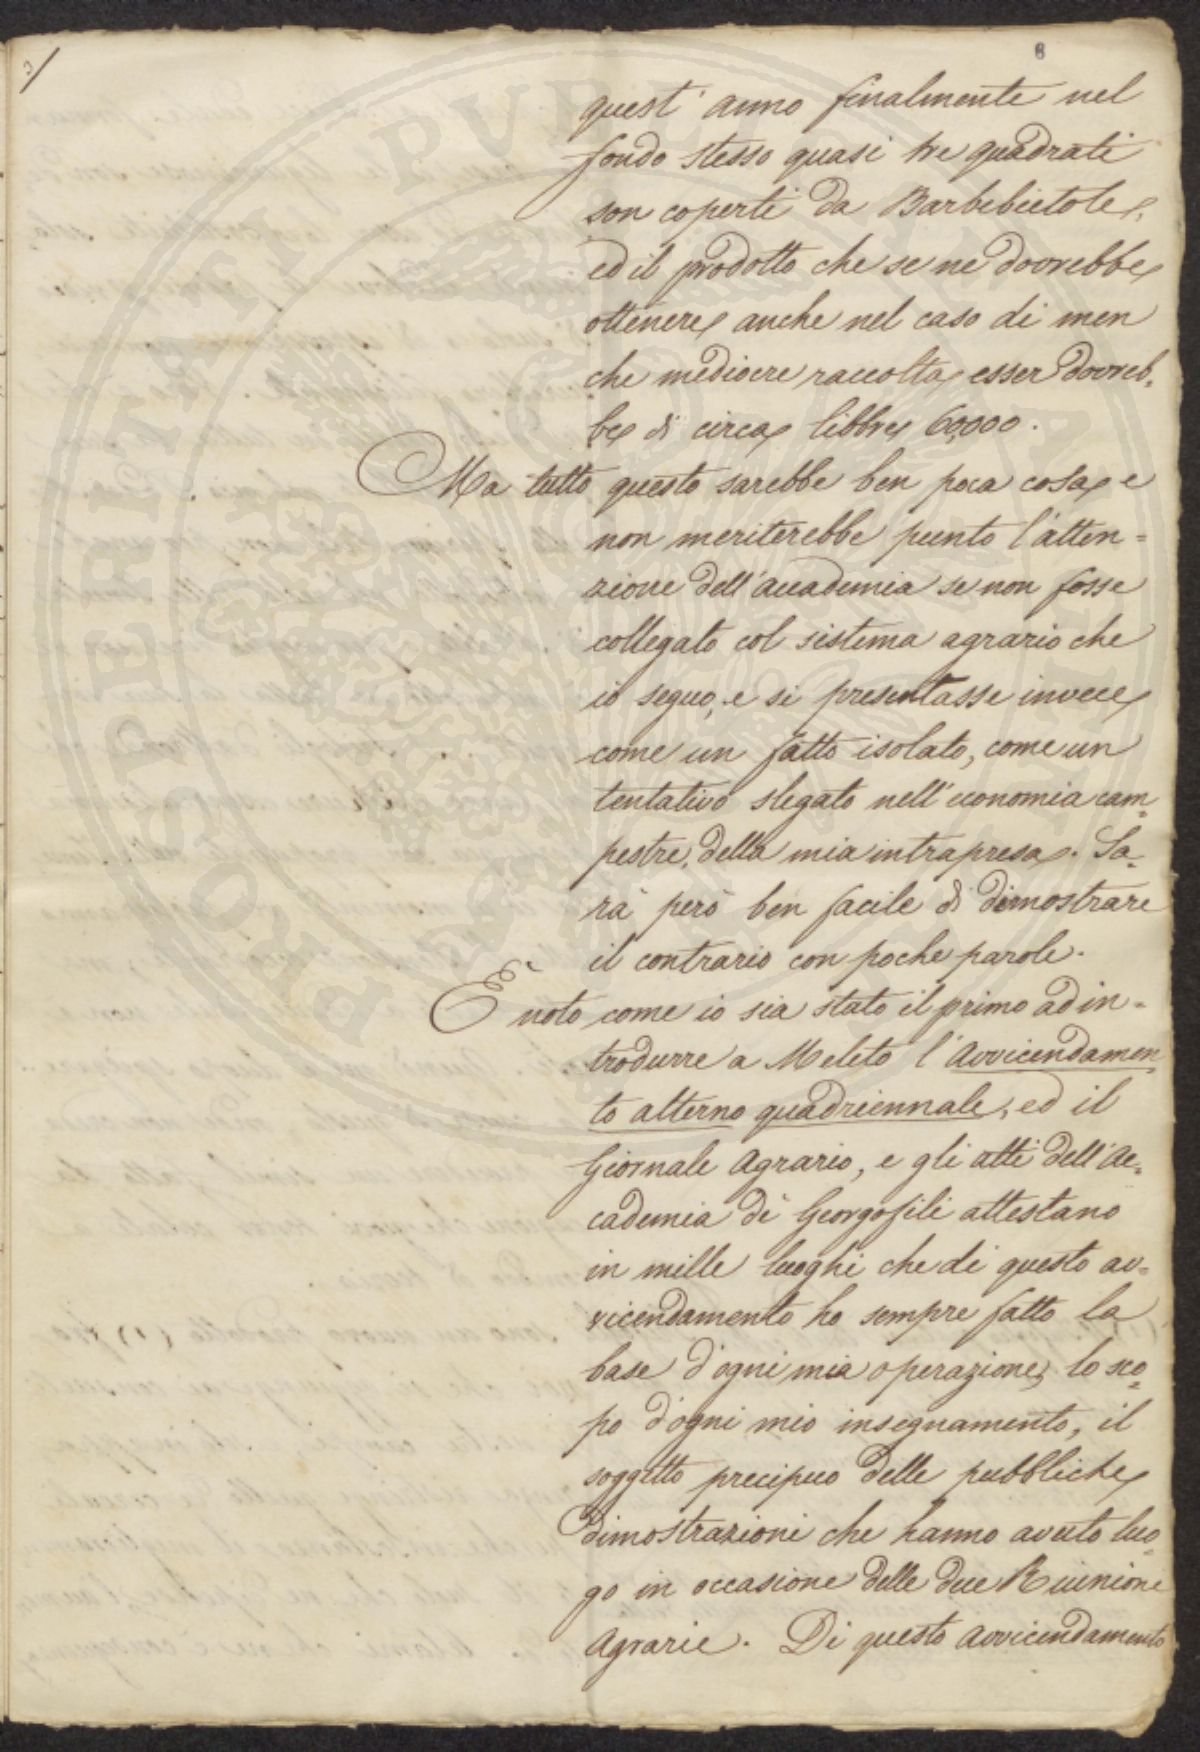 3/
8
quest' anno finalmente nel
fondo stesso quasi tre quadrati
son coperti da Barbebietole,
ed il prodotto che se ne dovrebbe
ottenere anche nel caso di men
che mediocre raccolta esser dovreb-
be di circa libbre 60,000.
Ma tutto questo sarebbe ben poca cosa e
non meriterebbe punto l'atten=
zione dell'Accademia se non fosse
collegato col sistema agrario che
io seguo, e si presentasse invece
come un fatto isolato, come un
tentativo slegato nell'economia cam=
pestre, della mia intrapresa. Sa=
rà però ben facile di dimostrare
il contrario con poche parole.
È noto come io sia stato il primo ad in=
trodurre a Meleto l'Avvicendamen=
to alterno quadriennale, ed il
Giornale Agrario, e gli atti dell'Ac=
cademia de' Georgofili attestano
in mille luoghi che di questo av=
vicendamento ho sempre fatto la
base d'ogni mia operazione, lo sco=
po d'ogni mio insegnamento, il
soggetto precipuo delle pubbliche
dimostrazioni che hanno avuto luo=
go in occasione delle due Riunione
Agrarie. Di questo avvicendamento
PROSPERITATI PUBLICAE